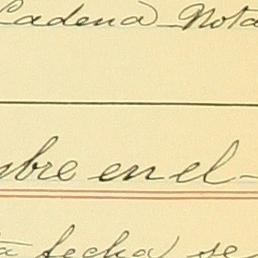 Cadena Nota
bre en el -
fecha se